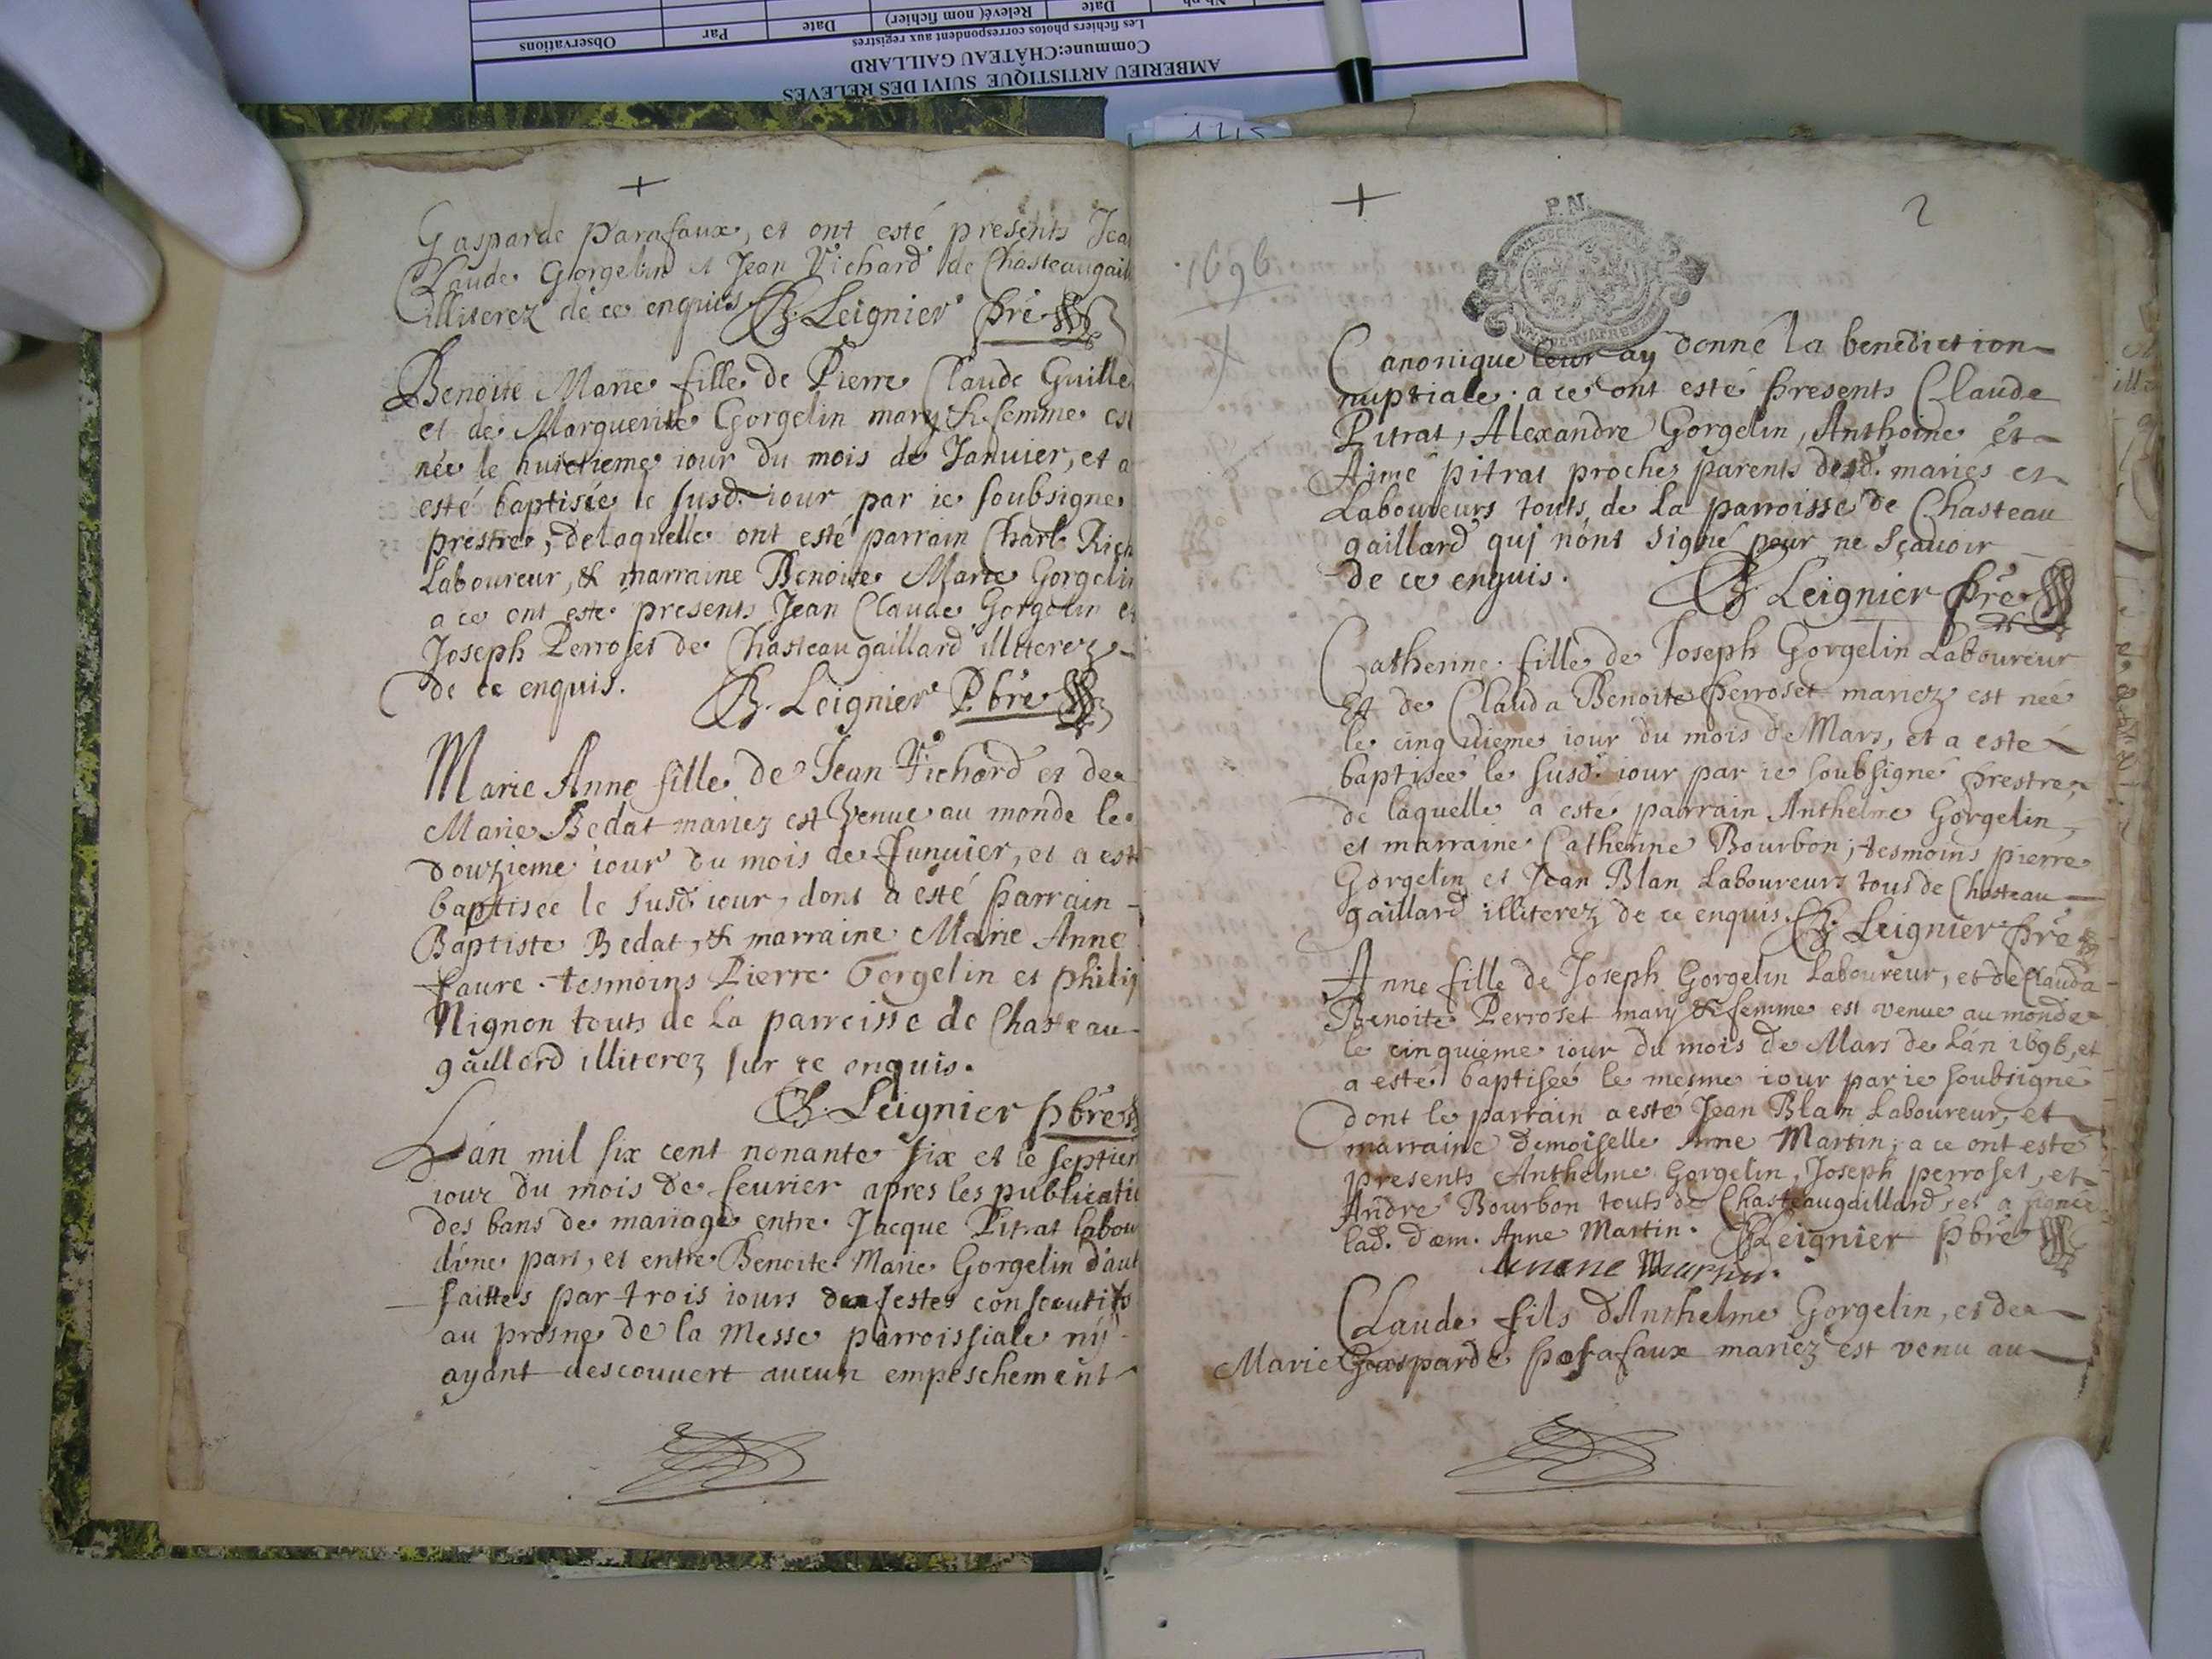 AMBERIEU ARTISTIQUE SUIVI DES RELEVES
Commune:CHÂTEAU GAILLARD
Les fichiers photos correspondent aux registres
Date
Relevé( nom fichier)
Date
Par
Observations
1715
Gasparde parafaux, et ont esté presents Jea
Claude Gorgelin et Jean Vichard de Chasteaugail
illiterez de ce enquis Leignier pre
Benoite Marie fille de Pierre Claude Guille
et de Marguerite Gorgelin mary & femme est
née le huictieme iour du mois de Januier, et a
esté baptisée le susd. iour par ie soubsigne
prestre, de laquelle ont esté parrain Charle Rich
Laboureur, & marraine Benoite Marie Gorgelin
a ce ont esté presents Jean Claude Gorgelin et
Joseph Perroset de Chasteaugaillard illiterez
de ce enquis. Leignier Pbre
Marie Anne fille de Jean Vichard et de
Marie Bedat mariez est venue au monde le
douzieme iour du mois de Januier, et a esté
baptisée le susd. iour, dont a esté parrain
Baptiste Bedat, & marraine Marie Anne
faure. tesmoins Pierre Gorgelin et philip
Mignon touts de la parroisse de Chasteau
gaillard illiterez sur ce enquis.
Leignier pbre
L'an mil six cent nonante six et le septiem
iour du mois de feurier apres les publicatio
des bans de mariage entre Jacque Pitrat labou
d'une part, et entre Benoite Marie Gorgelin d'aut
faittes par trois iours de festes consecutifs
au prosne de la Messe parroissiale ny
ayant descouuert aucun empeschement
2
P.N.
1696
Canonique leur ay donné la benediction
nuptiale. a ce ont esté presents Claude
Pitrat, Alexandre Gorgelin, Anthoine et
Aimé pitrat proches parents desd. mariés et
Laboureurs touts de la parroisse de Chasteau
gaillard quj n'ont signé pour ne sçauoir
de ce enquis.
Leignier pre
Catherine fille de Joseph Gorgelin Laboureur
Et de Clauda Benoite perroset mariez est née
le cinquieme iour du mois de Mars, et a esté
baptisée le susd. iour par ie soubsigné prestre,
de laquelle a esté parrain Anthelme Gorgelin,
et marraine Catherine Bourbon; tesmoins pierre
Gorgelin et Jean Blan Laboureurs tous de Chasteau
gaillard illiterez de ce enquis. Leignier pre
Anne fille de Joseph Gorgelin Laboureur, et de Clauda
Benoite Perroset mary & femme est venue au monde
le cinquieme iour du mois de Mars de l'an 1696, et
a esté baptisée le mesme iour par ie soubsigné
dont le parrain a esté Jean Blan Laboureur, et
marraine demoiselle Anne Martin; a ce ont esté
presents Anthelme Gorgelin, Joseph perroset, et
Andre Bourbon touts de Chasteaugaillard, et a signée
lad. dem. Anne Martin. Leignier pbre
Anne Martin.
Claude fils d'Anthelme Gorgelin, et de
Marie Gasparde parafaux mariez est venu au